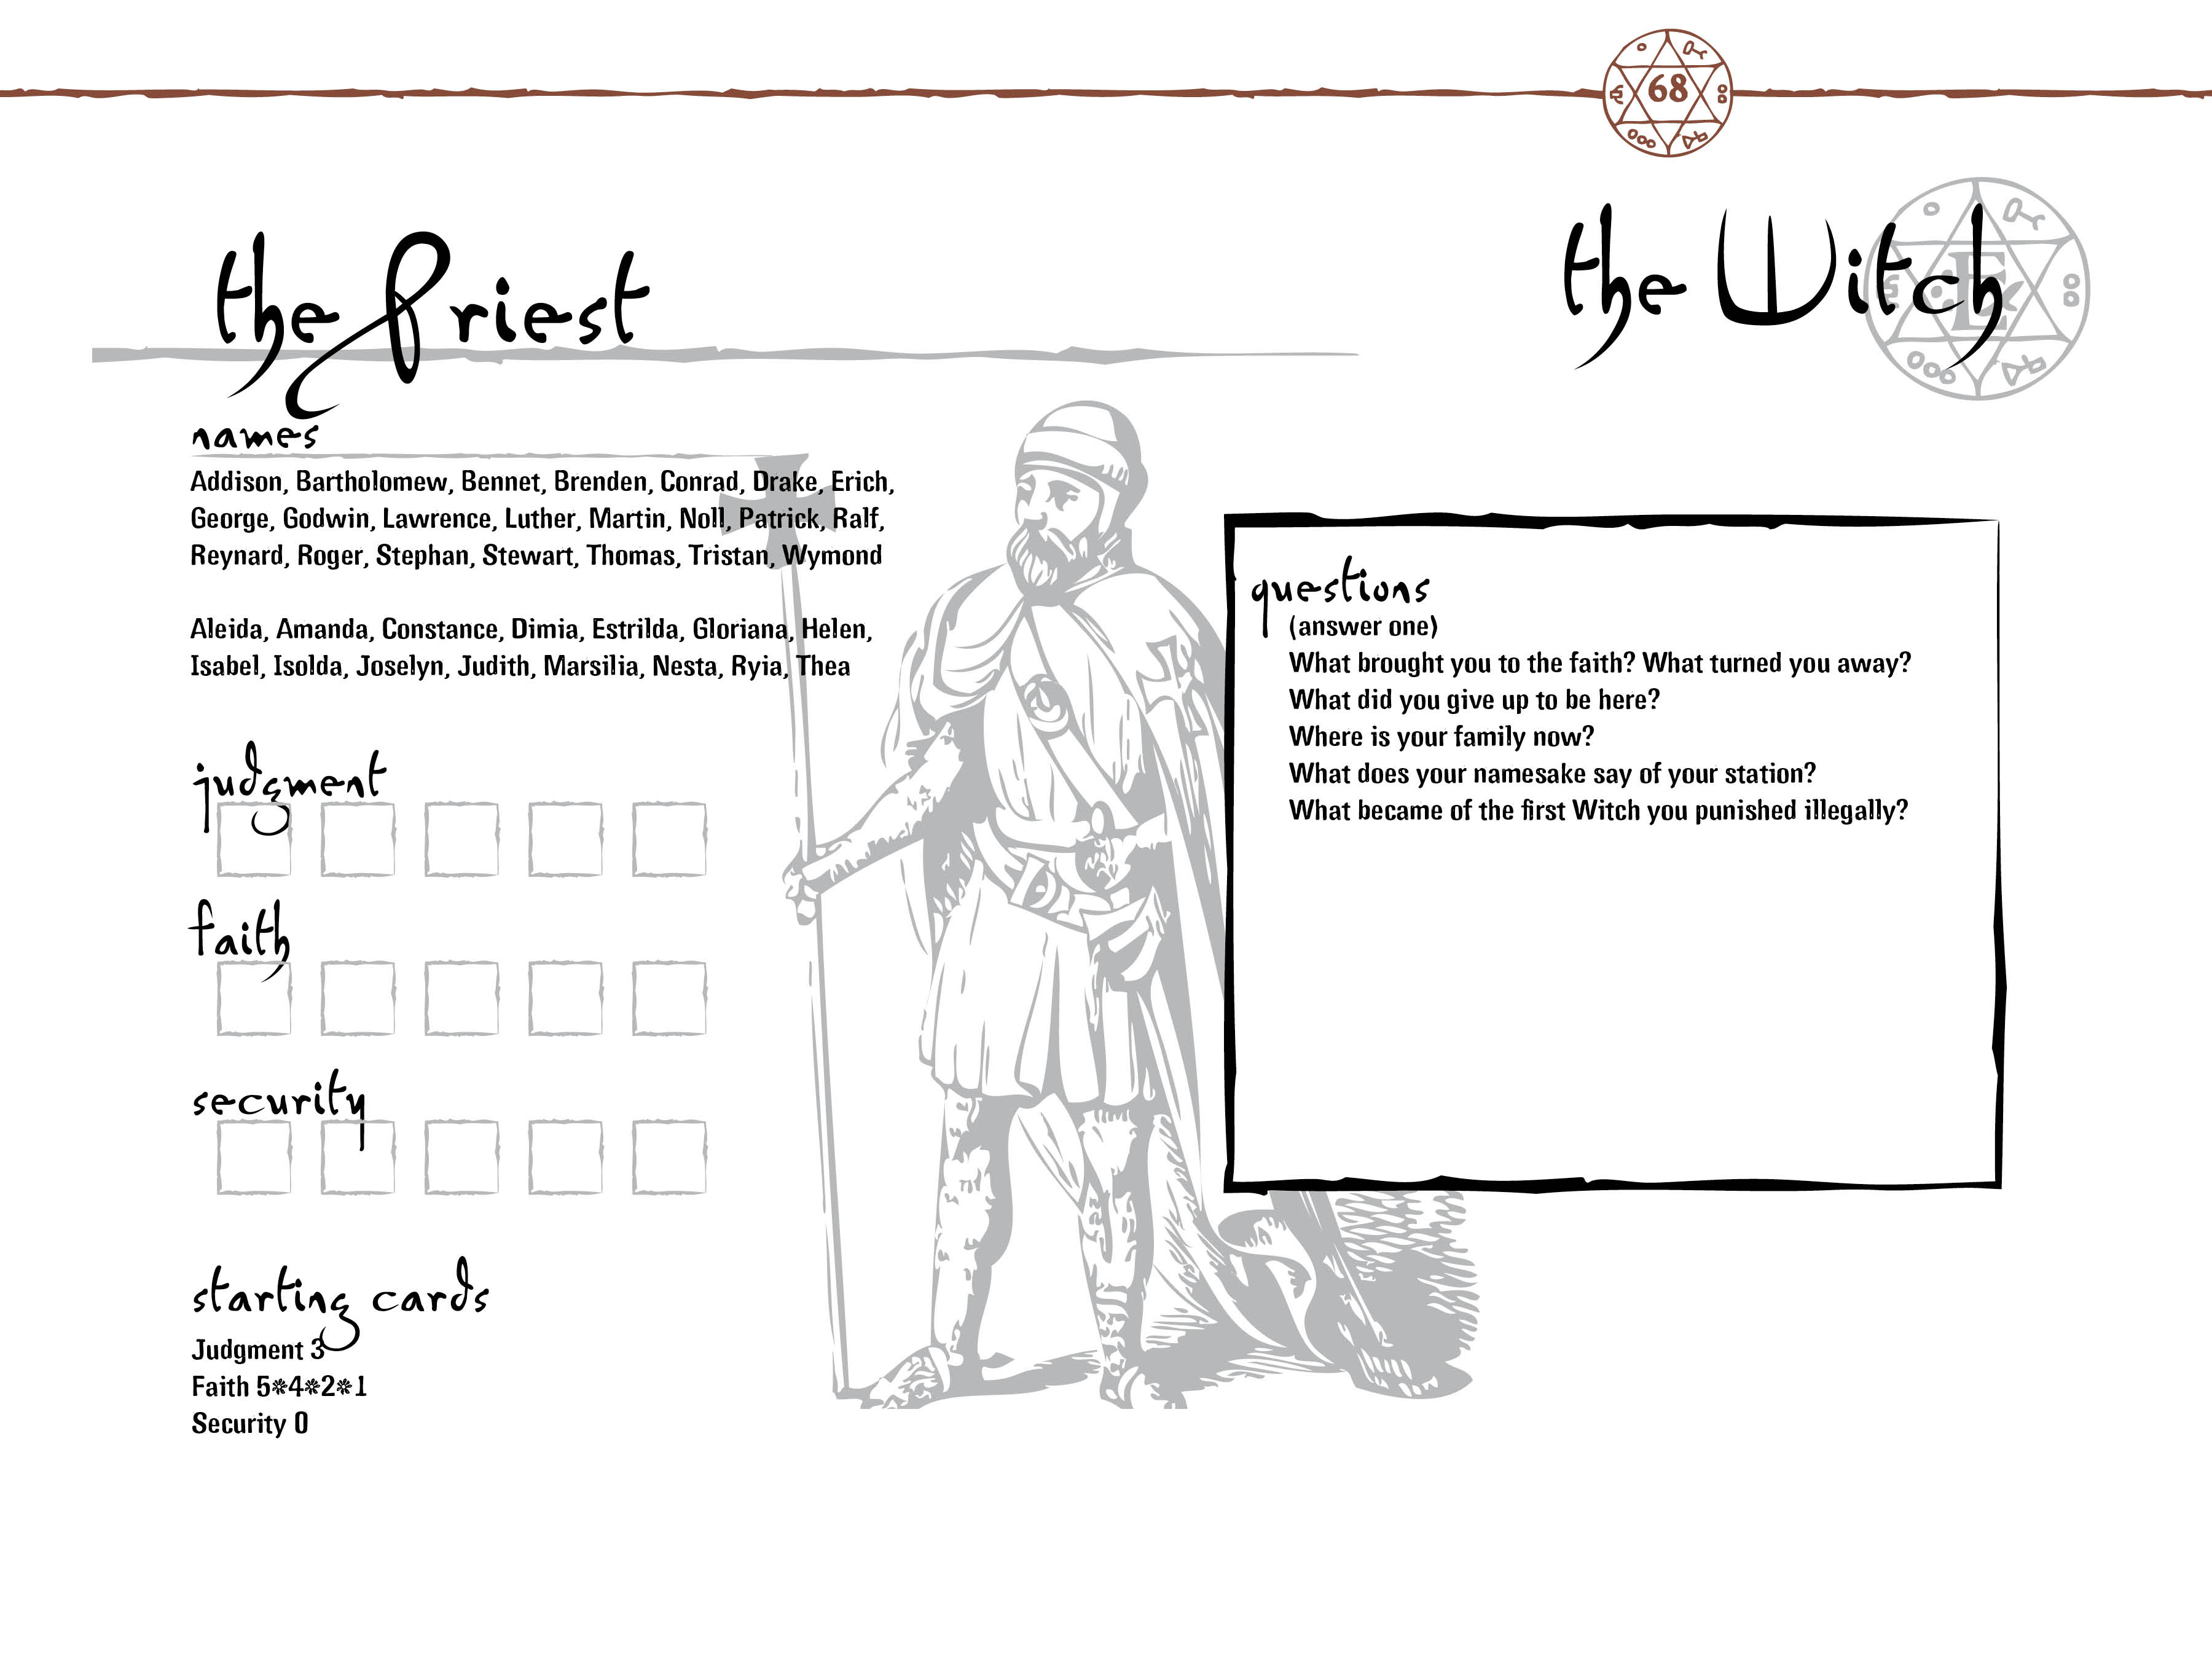 68
the Priest
the Witch
names
Addison, Bartholomew, Bennet, Brenden, Conrad, Drake, Erich,
George, Godwin, Lawrence, Luther, Martin, Noll, Patrick, Ralf,
Reynard, Roger, Stephan, Stewart, Thomas, Tristan, Wymond
Aleida, Amanda, Constance, Dimia, Estrilda, Gloriana, Helen,
Isabel, Isolda, Joselyn, Judith, Marsilia, Nesta, Ryia, Thea
judgment
faith
security
starting cards
Judgment 3
Faith 5*4*2*1
Security 0
questions
(answer one)
What brought you to the faith? What turned you away?
What did you give up to be here?
Where is your family now?
What does your namesake say of your station?
What became of the first Witch you punished illegally?